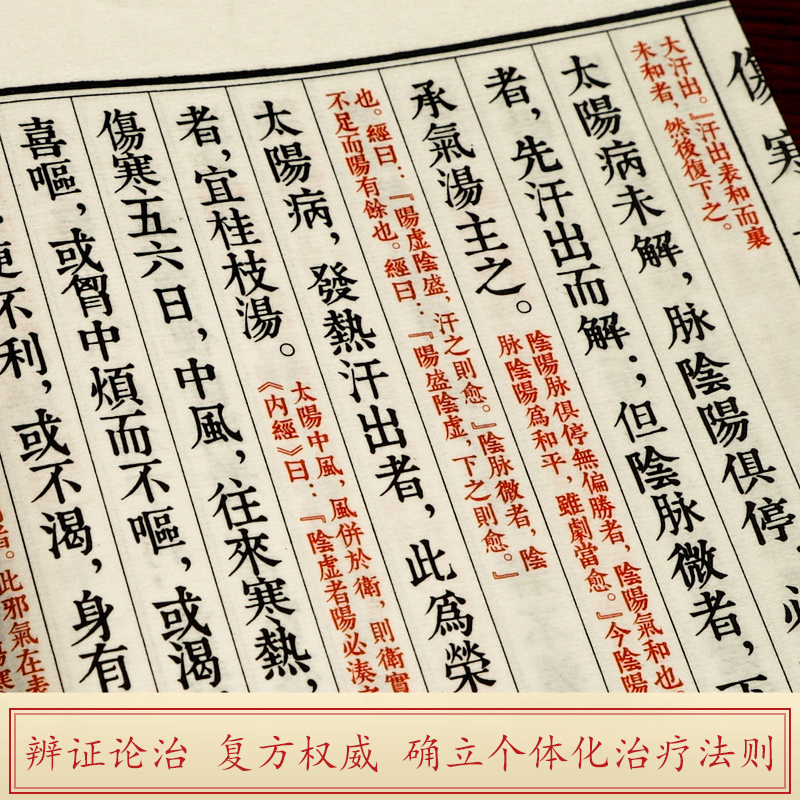 傷寒
大汗出。』汗出表和而裏
未和者，然後復下之。
太陽病未解，脉陰陽俱停，必
者，先汗出而解；但陰脉微者，下
承氣湯主之。
陰陽脉俱停無偏勝者，陰陽氣和也。
脉陰陽爲和平，雖劇當愈。』今陰陽
也。經曰：『陽虛陰盛，汗之則愈。』陰脉微者，陰
不足而陽有餘也。經曰：『陽盛陰虛，下之則愈。』
太陽病，發熱汗出者，此爲榮
者，宜桂枝湯。
太陽中風，風併於衛，則衛實
《内經》曰：『陰虛者陽必湊
傷寒五六日，中風，往來寒熱，
喜嘔，或胷中煩而不嘔，或渴，
不利，或不渴，身有
者。此邪氣在表
辨证论治 复方权威 确立个体化治疗法则